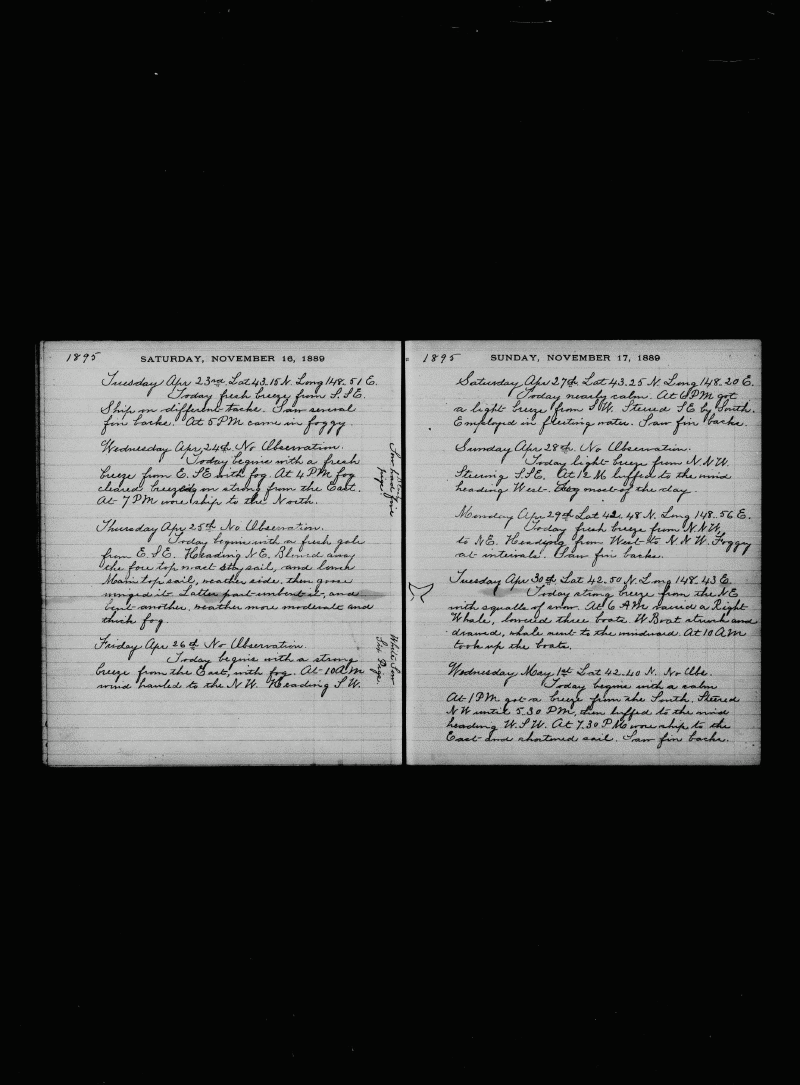 1895 SATURDAY, NOVEMBER 16, 1889
Tuesday Apr 23rd. Lat 43.15 N. Long 148.51 E.
Today fresh breeze from S.S.E.
Ship on different tacks. Saw several
fin backs. At 5 PM came in foggy.
Wednesday Apr 24th. No Observation.
Today begins with a fresh
breeze from E.S.E with fog. At 4 PM fog
cleared breezing on strong from the East.
At 7 PM wore ship to the North.
Thursday Apr 25th No Observation.
Today begins with a fresh gale
from E.S.E. Heading N.E. Blowed away
the fore top mast stay sail, and lower
Main top sail, weather side, then goose
winged it. Latter part unbent it, and
bent another. weather more moderate and
thick fog.
Friday Apr 26th No Observation.
Today begins with a strong
breeze from the East, with fog. At 10 AM
wind hauled to the N.W. Heading S.W.
1895 SUNDAY, NOVEMBER 17, 1889
Saturday Apr 27th. Lat 43.25 N. Long 148.20 E.
Today nearly calm. At 6 PM got
a light breeze from S.W. Steered SE by South.
Employed in fleeting water. Saw fin backs.
Sunday Apr 28th. No Observation.
Today light breeze from N.N.W.
Steering S.S.E. At 12 M luffed to the wind
heading West. Fog most of the day.
Monday Apr 29th Lat 42.48 N. Long 148.56 E.
Today fresh breeze from N.N.W.
to N.E. Heading from West to N.N.W. Foggy
at intervals. Saw fin backs.
Tuesday Apr 30th. Lat 42.50 N. Long 148.43 E.
Today strong breeze from the NE
with squalls of snow. At 6 AM raised a Right
Whale, lowered three boats. W Boat struck and
drawed, whale went to the windward. At 10 AM
took up the boats.
Wednesday May 1st Lat 42.40 N. No Obs.
Today begins with a calm
At 1 PM got a breeze from the South. Steered
N W until 5.30 PM, then luffed to the wind
heading W.S.W. At 7.30 PM wore ship to the
East and shortened sail. Saw fin backs.